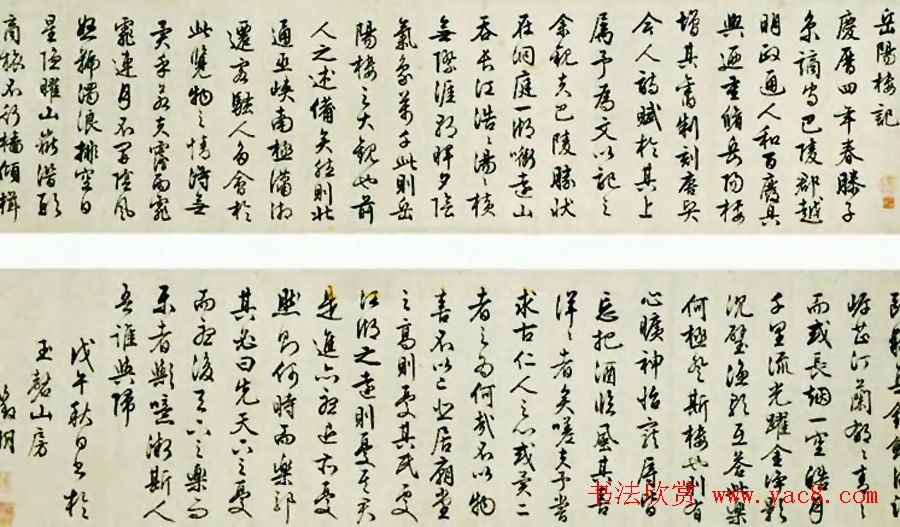 岳陽樓記
慶曆四年春滕子
京謫守巴陵郡越
明政通人和百廢具
興迺重脩岳陽樓
增其舊制刻唐賢
今人詩賦於其上
屬予為文以記之
余觀夫巴陵勝狀
在洞庭一湖銜遠山
吞長江浩〻湯〻橫
無際涯朝暉夕陰
氣象萬千此則岳
陽樓之大觀也前
人之述備矣然則北
通巫峽南極瀟湘
遷客騷人多會於
此覽物之情得無
異乎若夫霪雨霏
霏連月不開陰風
怒號濁浪排空日
星隱曜山嶽潛形
商旅不行檣傾楫
岸芷汀蘭郁〻青〻
而或長烟一空皓月
千里流光躍金淨影
沉璧漁歌互答此樂
何極登斯樓也則有
心曠神怡寵辱皆
忘把酒臨風其喜
洋〻者矣嗟夫予嘗
求古仁人之心或異二
者之為何哉不以物
喜不以己悲居廟堂
之高則憂其民處
江湖之遠則憂其君
是進亦憂退亦憂
然則何時而樂耶
其必曰先天下之憂
而憂後天下之樂而
樂者歟噫微斯人
吾誰與歸
戊午秋日書於
玉磬山房
徵明
书法欣赏 www.yac8.com